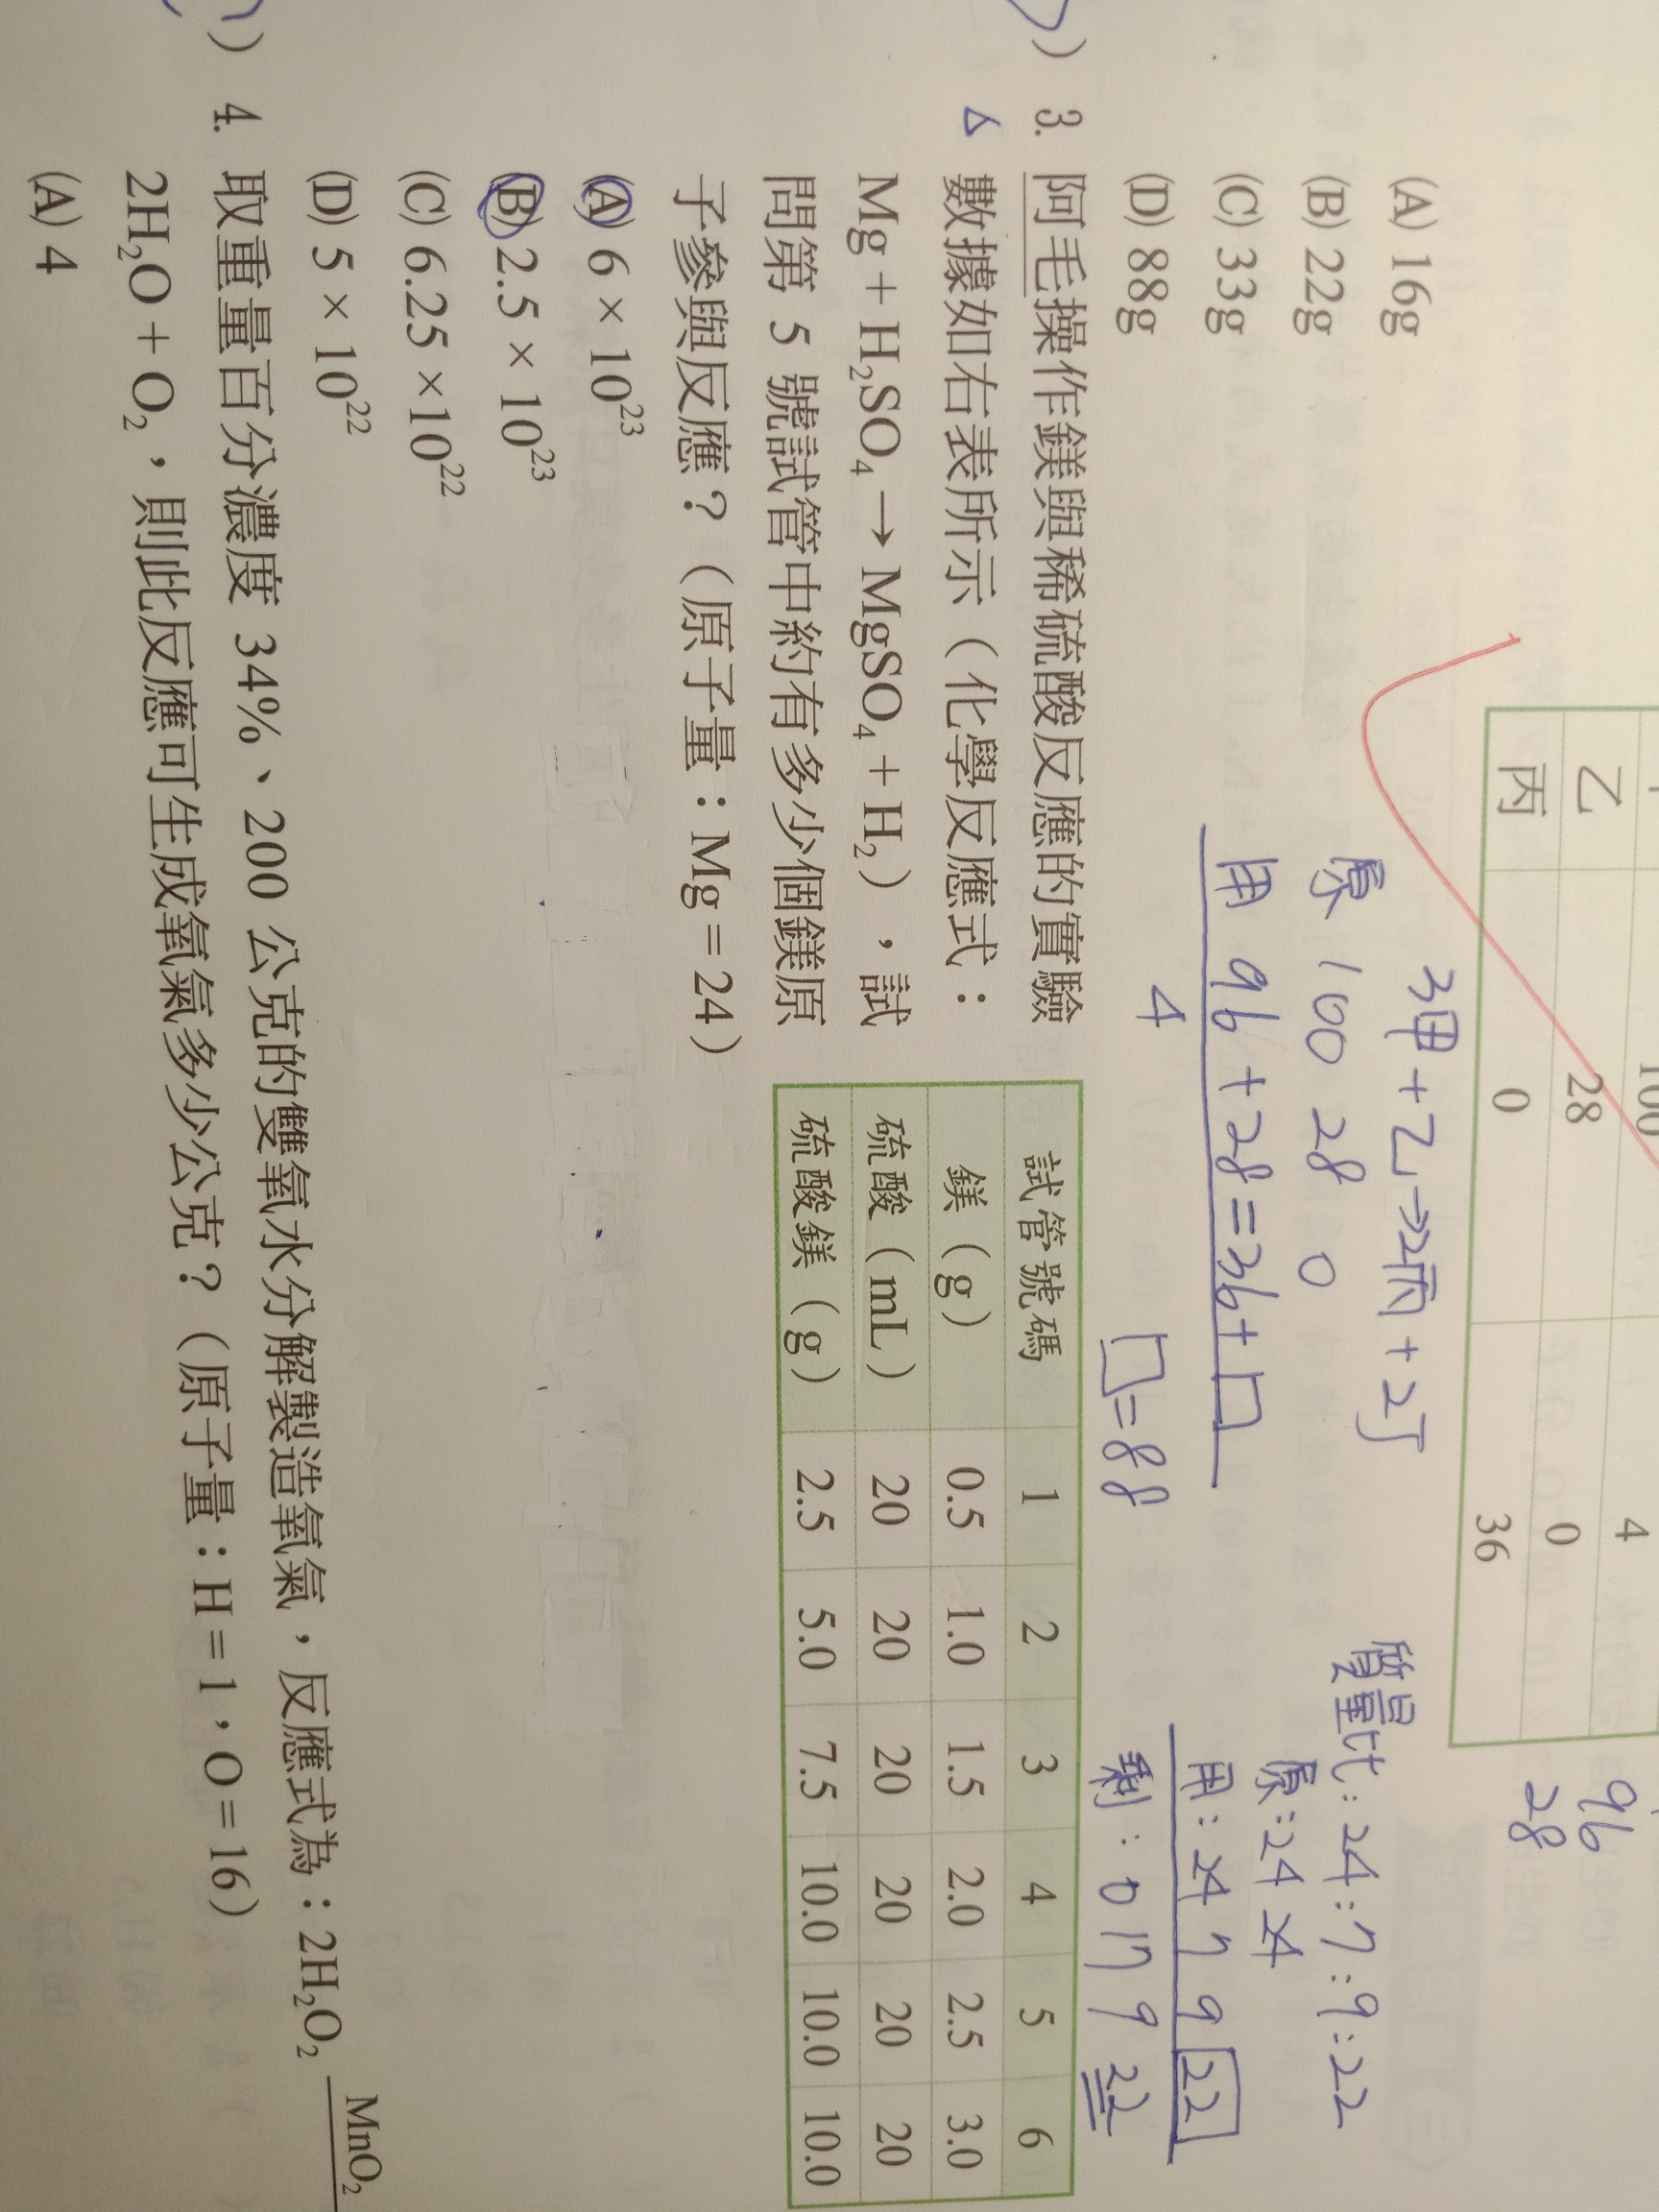 100 4 96
乙 28 0 28
丙 0 36
(A) 16g 3甲+乙→2丙+2丁
(B) 22g 原 100 28 0 質量比:24:7:9:22
(C) 33g 用 96+28=36+□ 原:24 24
(D) 88g 4 □=88 用:24 7 9 22
剩:0 17 9 22
) 3. 阿毛操作鎂與稀硫酸反應的實驗
數據如右表所示(化學反應式:
Mg + H₂SO₄ → MgSO₄ + H₂),試
問第 5 號試管中約有多少個鎂原
子參與反應?(原子量:Mg = 24)
試管號碼 1 2 3 4 5 6
鎂(g) 0.5 1.0 1.5 2.0 2.5 3.0
硫酸(mL) 20 20 20 20 20 20
硫酸鎂(g) 2.5 5.0 7.5 10.0 10.0 10.0
(A) 6 × 10²³
(B) 2.5 × 10²³
(C) 6.25 ×10²²
(D) 5 × 10²²
) 4. 取重量百分濃度 34%、200 公克的雙氧水分解製造氧氣,反應式為:2H₂O₂ MnO₂
2H₂O + O₂,則此反應可生成氧氣多少公克?(原子量:H = 1,O = 16)
(A) 4